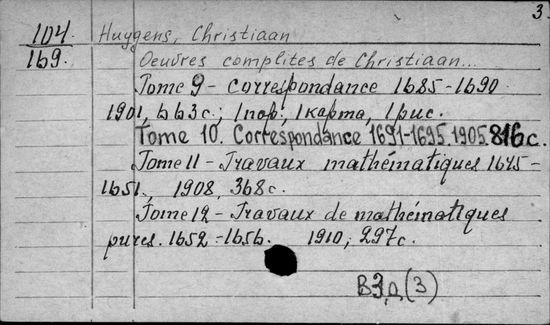 3
104. Huygens, Christiaan
169. Oeuvres complites de Christiaan...
Tome 9 - Correspondance 1685-1690
1901, 663 с.; 1 пор., 1 карта, 1 рис.
Tome 10. Correspondance 1691-1695, 1905. 816 с.
Tome 11 - Travaux mathématiques 1645-
1651, 1908, 368 с.
Tome 12 - Travaux de mathématiques
pures. 1652-1656. 1910, 297 с.
(3)